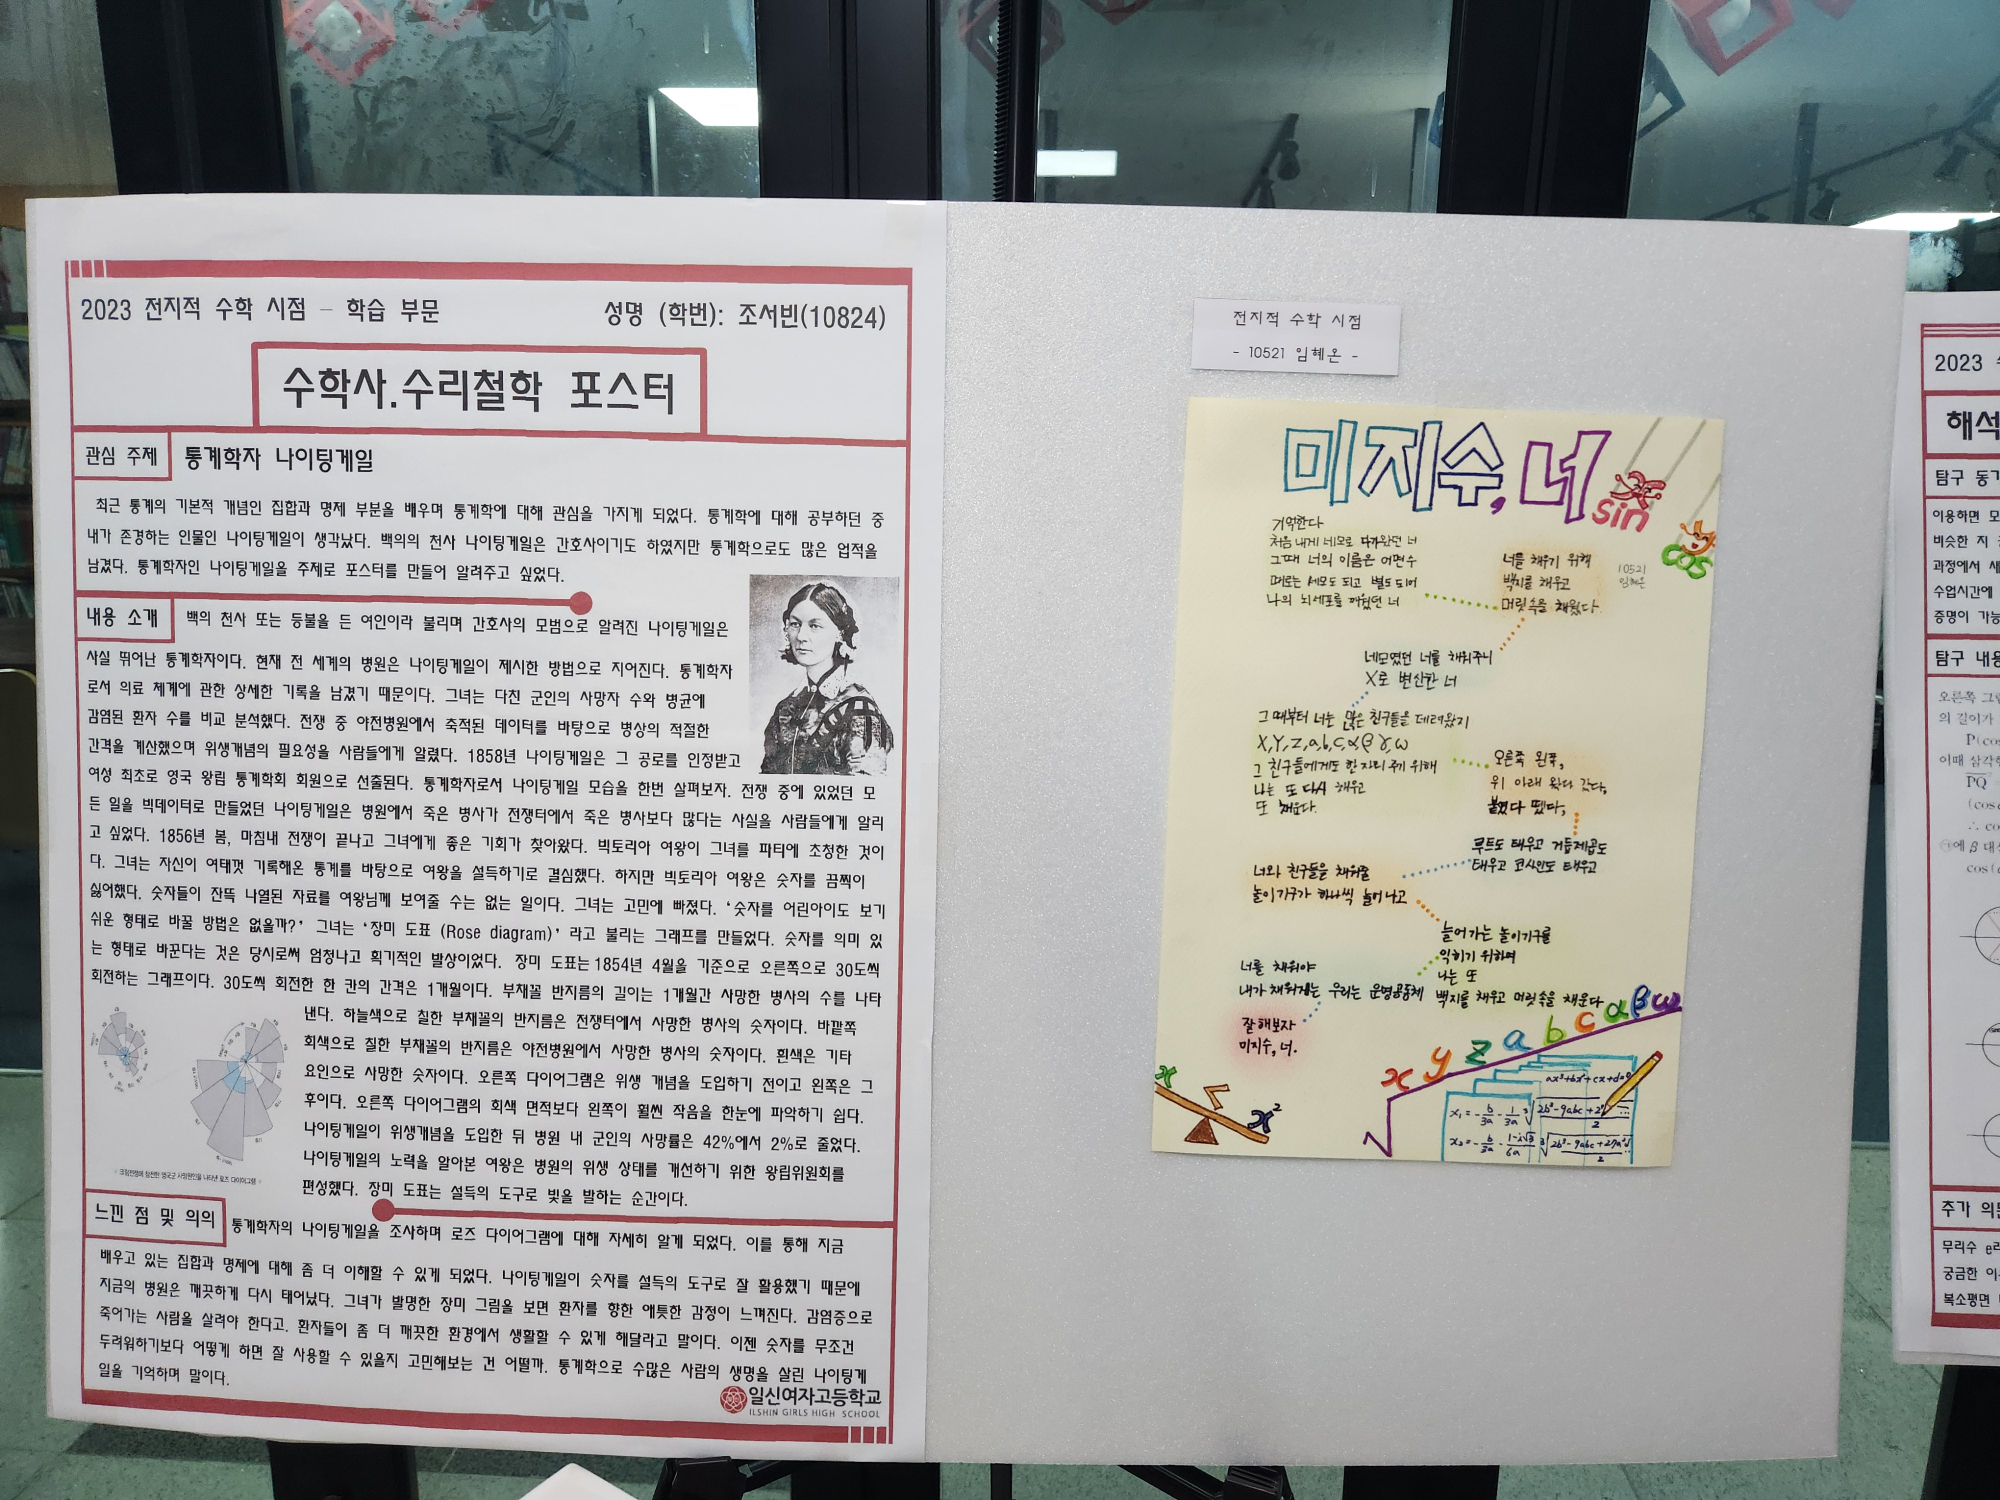 2023 전지적 수학 시점 - 학습 부문
성명 (학번): 조서빈(10824)
수학사.수리철학 포스터
관심 주제
통계학자 나이팅게일
최근 통계의 기본적 개념인 집합과 명제 부분을 배우며 통계학에 대해 관심을 가지게 되었다. 통계학에 대해 공부하던 중
내가 존경하는 인물인 나이팅게일이 생각났다. 백의의 천사 나이팅게일은 간호사이기도 하였지만 통계학으로도 많은 업적을
남겼다. 통계학자인 나이팅게일을 주제로 포스터를 만들어 알려주고 싶었다.
내용 소개
백의 천사 또는 등불을 든 여인이라 불리며 간호사의 모범으로 알려진 나이팅게일은
사실 뛰어난 통계학자이다. 현재 전 세계의 병원은 나이팅게일이 제시한 방법으로 지어진다. 통계학자
로서 의료 체계에 관한 상세한 기록을 남겼기 때문이다. 그녀는 다친 군인의 사망자 수와 병균에
감염된 환자 수를 비교 분석했다. 전쟁 중 야전병원에서 축적된 데이터를 바탕으로 병상의 적절한
간격을 계산했으며 위생개념의 필요성을 사람들에게 알렸다. 1858년 나이팅게일은 그 공로를 인정받고
여성 최초로 영국 왕립 통계학회 회원으로 선출된다. 통계학자로서 나이팅게일 모습을 한번 살펴보자. 전쟁 중에 있었던 모
든 일을 빅데이터로 만들었던 나이팅게일은 병원에서 죽은 병사가 전쟁터에서 죽은 병사보다 많다는 사실을 사람들에게 알리
고 싶었다. 1856년 봄, 마침내 전쟁이 끝나고 그녀에게 좋은 기회가 찾아왔다. 빅토리아 여왕이 그녀를 파티에 초청한 것이
다. 그녀는 자신이 여태껏 기록해온 통계를 바탕으로 여왕을 설득하기로 결심했다. 하지만 빅토리아 여왕은 숫자를 끔찍이
싫어했다. 숫자들이 잔뜩 나열된 자료를 여왕님께 보여줄 수는 없는 일이다. 그녀는 고민에 빠졌다. ‘숫자를 어린아이도 보기
쉬운 형태로 바꿀 방법은 없을까?’ 그녀는 ‘장미 도표 (Rose diagram)’ 라고 불리는 그래프를 만들었다. 숫자를 의미 있
는 형태로 바꾼다는 것은 당시로써 엄청나고 획기적인 발상이었다. 장미 도표는 1854년 4월을 기준으로 오른쪽으로 30도씩
회전하는 그래프이다. 30도씩 회전한 한 칸의 간격은 1개월이다. 부채꼴 반지름의 길이는 1개월간 사망한 병사의 수를 나타
낸다. 하늘색으로 칠한 부채꼴의 반지름은 전쟁터에서 사망한 병사의 숫자이다. 바깥쪽
회색으로 칠한 부채꼴의 반지름은 야전병원에서 사망한 병사의 숫자이다. 흰색은 기타
요인으로 사망한 숫자이다. 오른쪽 다이어그램은 위생 개념을 도입하기 전이고 왼쪽은 그
후이다. 오른쪽 다이어그램의 회색 면적보다 왼쪽이 훨씬 작음을 한눈에 파악하기 쉽다.
나이팅게일이 위생개념을 도입한 뒤 병원 내 군인의 사망률은 42%에서 2%로 줄었다.
나이팅게일의 노력을 알아본 여왕은 병원의 위생 상태를 개선하기 위한 왕립위원회를
편성했다. 장미 도표는 설득의 도구로 빛을 발하는 순간이다.
느낀 점 및 의의
통계학자의 나이팅게일을 조사하며 로즈 다이어그램에 대해 자세히 알게 되었다. 이를 통해 지금
배우고 있는 집합과 명제에 대해 좀 더 이해할 수 있게 되었다. 나이팅게일이 숫자를 설득의 도구로 잘 활용했기 때문에
지금의 병원은 깨끗하게 다시 태어났다. 그녀가 발명한 장미 그림을 보면 환자를 향한 애틋한 감정이 느껴진다. 감염증으로
죽어가는 사람을 살려야 한다고. 환자들이 좀 더 깨끗한 환경에서 생활할 수 있게 해달라고 말이다. 이젠 숫자를 무조건
두려워하기보다 어떻게 하면 잘 사용할 수 있을지 고민해보는 건 어떨까. 통계학으로 수많은 사람의 생명을 살린 나이팅게
일을 기억하며 말이다.
일신여자고등학교
ILSHIN GIRLS HIGH SCHOOL
전지적 수학 시점
- 10521 임혜온 -
미지수, 너
sin
cos
10521
임혜온
거억한다
처음 내게 네모로 다가왔던 너
그때 너의 이름은 어떤수
때로는 세모도 되고 별도 되어
나의 뇌세포를 깨웠던 너
너를 채우기 위해
백지를 채우고
머릿속을 채웠다
네모였던 너를 채워주니
X로 변신한 너
그때부터 너는 많은 친구들을 데려왔지
X,Y,Z,a,b,c,α,β,γ,ω
그 친구들에게도 한 자리 주기 위해
나는 또 다시 채우고
또 채운다
오른쪽 왼쪽,
위 아래 왔다 갔다,
붙였다 뗐다,
루트도 태우고 거듭제곱도
태우고 코사인도 태우고
너와 친구들을 채워줄
놀이기구가 하나씩 늘어나고
늘어가는 놀이기구를
익히기 위하여
나는 또
백지를 채우고 머릿속을 채운다
너를 채워야
내가 채워지는 우리는 운명공동체
잘해보자
미지수, 너.
x y z a b c α β ω
x
x²
ax³+bx²+cx+d=0
2023
해석
탐구 동기
이용하면 모
비슷한 지
과정에서 세
수업시간에
증명이 가능
탐구 내용
오른쪽 그림
의 길이가
P(cos
이때 삼각형
PQ
(cos
∴ co
에 β 대신
cos(
추가 의문
무리수 e
궁금한 이
복소평면